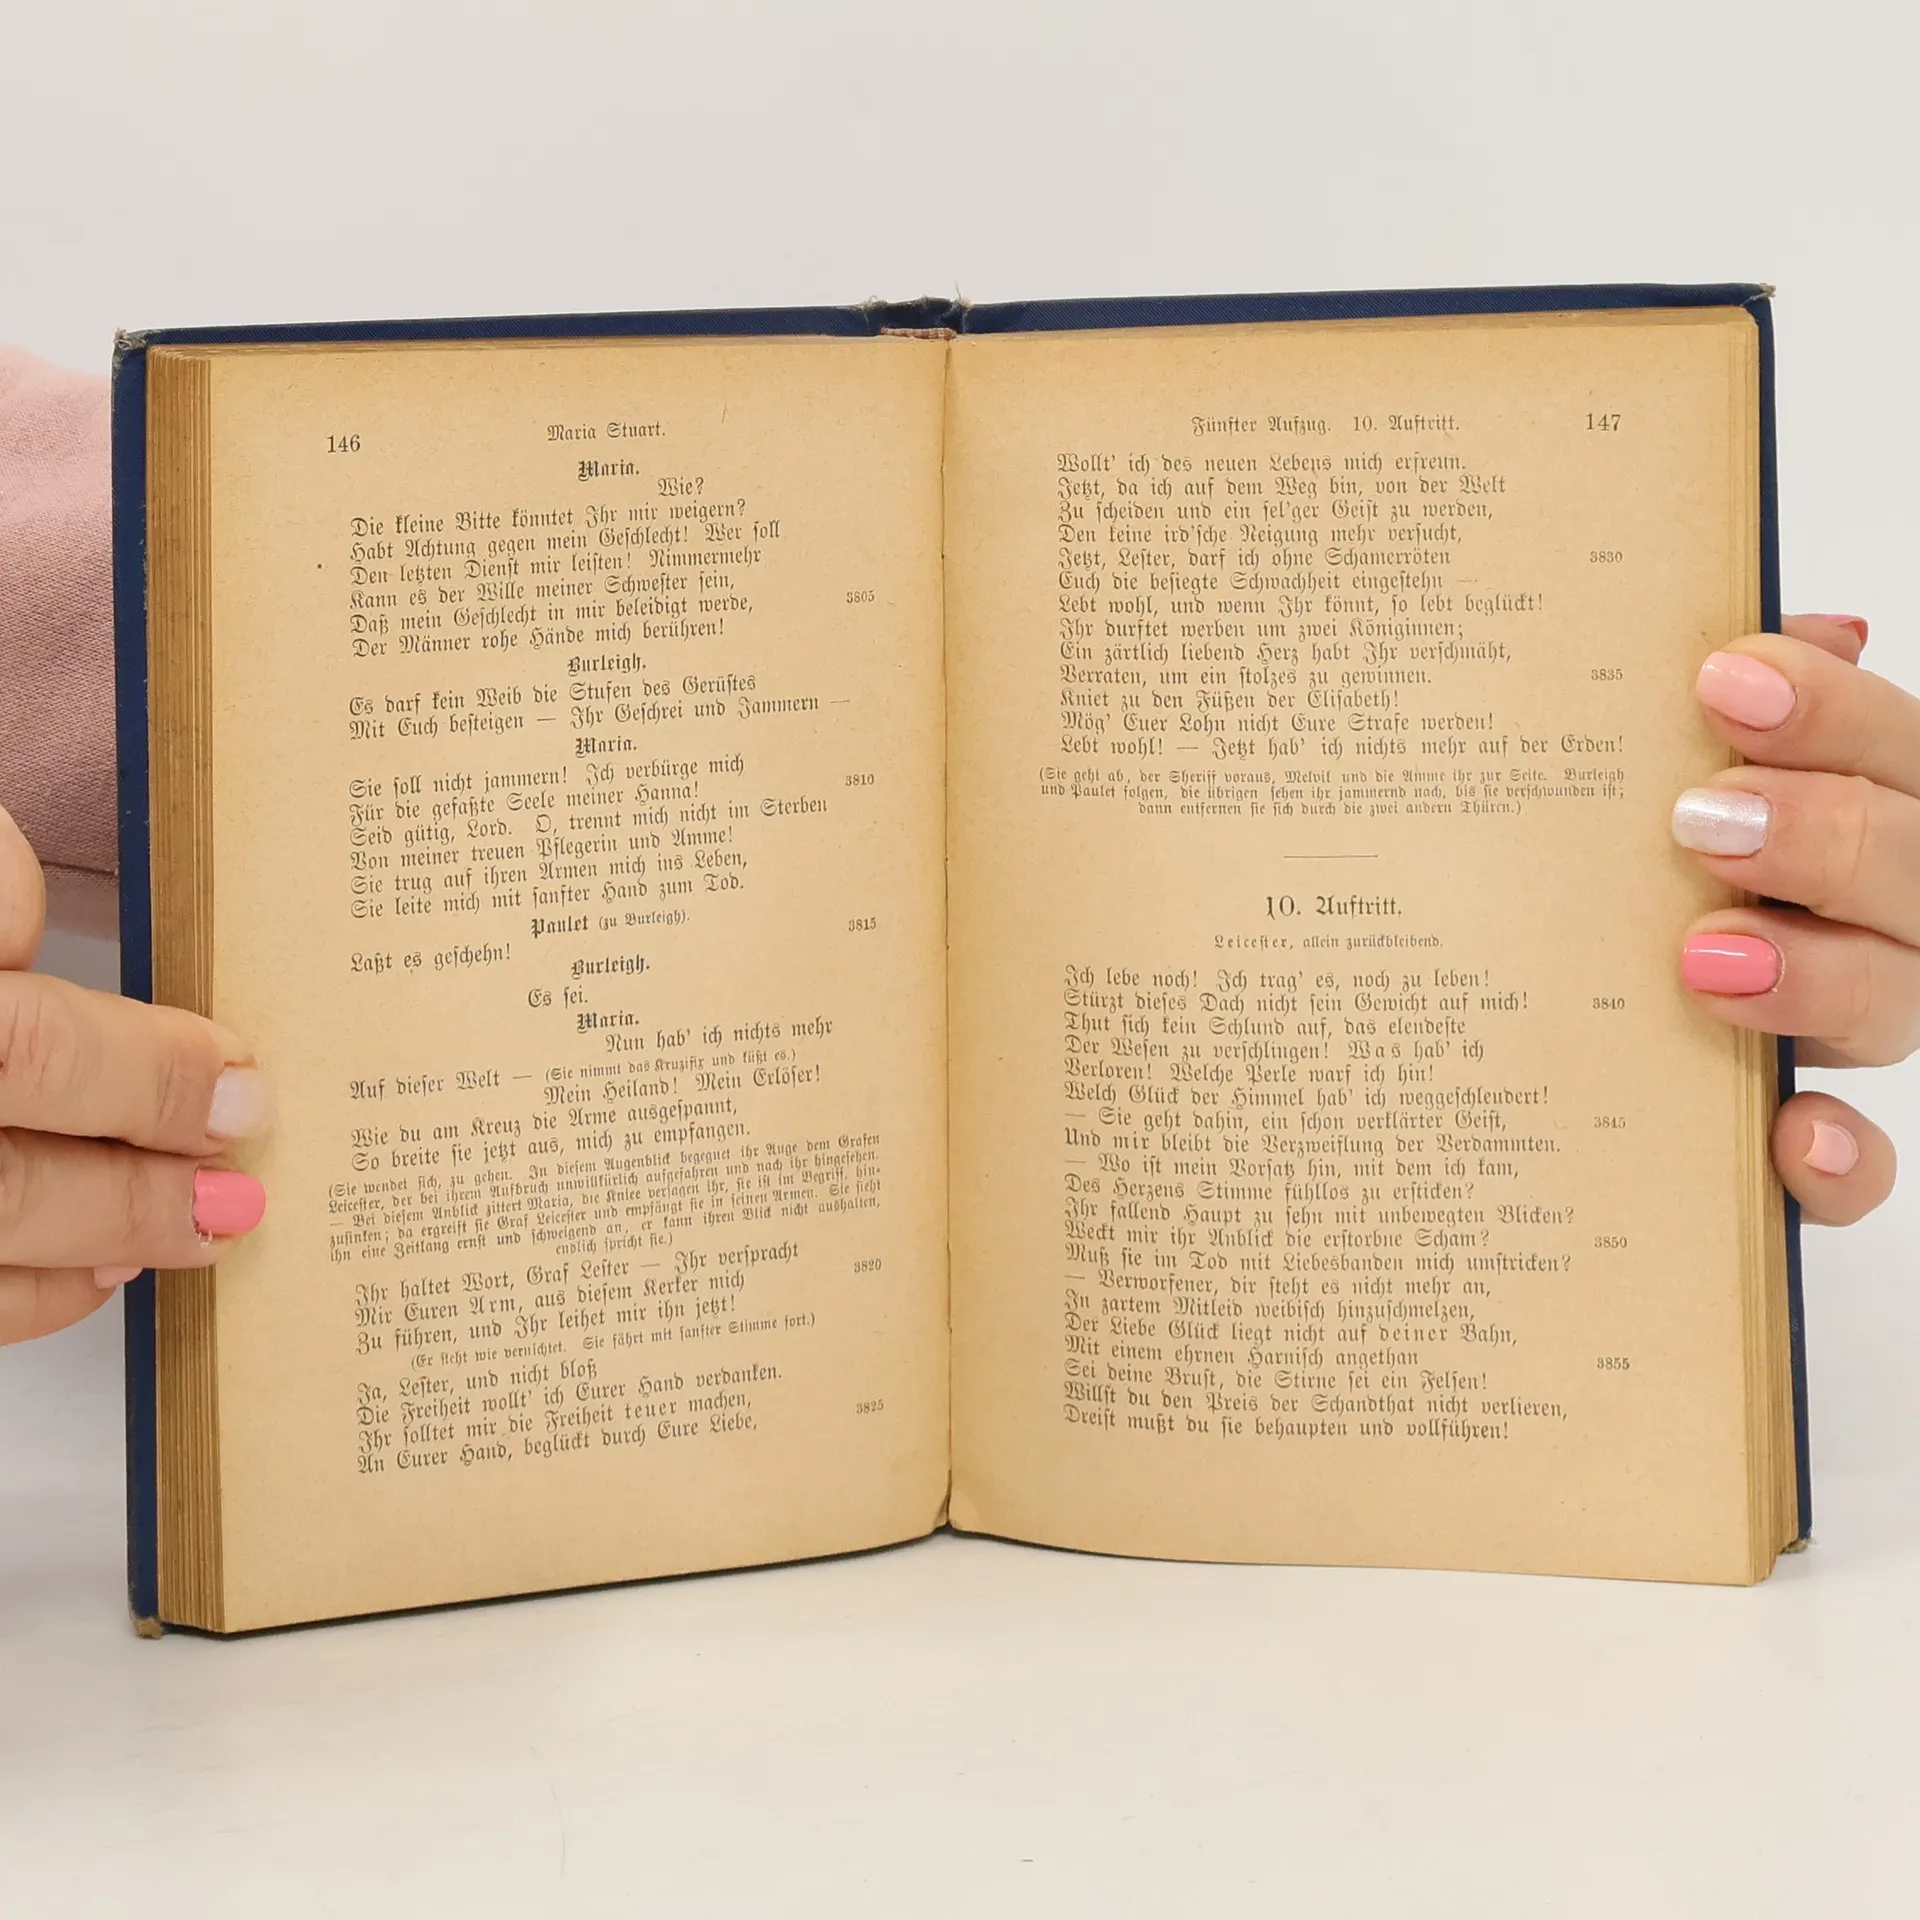 146
Maria Stuart.
Maria.
Wie?
Die kleine Bitte könntet Ihr mir weigern?
Habt Achtung gegen mein Geschlecht! Wer soll
Den letzten Dienst mir leisten! Nimmermehr
Kann es der Wille meiner Schwester sein,
Daß mein Geschlecht in mir beleidigt werde, 3805
Der Männer rohe Hände mich berühren!
Burleigh.
Es darf kein Weib die Stufen des Gerüstes
Mit Euch besteigen — Ihr Geschrei und Jammern —
Maria.
Sie soll nicht jammern! Ich verbürge mich
Für die gefaßte Seele meiner Hanna! 3810
Seid gütig, Lord. O, trennt mich nicht im Sterben
Von meiner treuen Pflegerin und Amme!
Sie trug auf ihren Armen mich ins Leben,
Sie leite mich mit sanfter Hand zum Tod.
Paulet (zu Burleigh).
Laßt es geschehn! 3815
Burleigh.
Es sei.
Maria.
Nun hab' ich nichts mehr
Auf dieser Welt — (Sie nimmt das Kruzifix und küßt es.)
Mein Heiland! Mein Erlöser!
Wie du am Kreuz die Arme ausgespannt,
So breite sie jetzt aus, mich zu empfangen.
(Sie wendet sich, zu gehen. In diesem Augenblick begegnet ihr Auge dem Grafen
Leicester, der bei ihrem Aufbruch unwillkürlich aufgefahren und nach ihr hingesehen.
— Bei diesem Anblick zittert Maria, die Kniee versagen ihr, sie ist im Begriff, hin-
zusinken; da ergreift sie Graf Leicester und empfängt sie in seinen Armen. Sie sieht
ihn eine Zeitlang ernst und schweigend an, er kann ihren Blick nicht aushalten,
endlich spricht sie.)
Ihr haltet Wort, Graf Lester — Ihr verspracht
Mir Euren Arm, aus diesem Kerker mich 3820
Zu führen, und Ihr leihet mir ihn jetzt!
(Er steht wie vernichtet. Sie fährt mit sanfter Stimme fort.)
Ja, Lester, und nicht bloß
Die Freiheit wollt' ich Eurer Hand verdanken.
Ihr solltet mir die Freiheit teuer machen,
An Eurer Hand, beglückt durch Eure Liebe, 3825
Fünfter Aufzug. 10. Auftritt. 147
Wollt' ich des neuen Lebens mich erfreun.
Jetzt, da ich auf dem Weg bin, von der Welt
Zu scheiden und ein sel'ger Geist zu werden,
Den keine ird'sche Neigung mehr versucht,
Jetzt, Lester, darf ich ohne Schamerröten 3830
Euch die besiegte Schwachheit eingestehn —
Lebt wohl, und wenn Ihr könnt, so lebt beglückt!
Ihr durftet werben um zwei Königinnen;
Ein zärtlich liebend Herz habt Ihr verschmäht,
Verraten, um ein stolzes zu gewinnen. 3835
Kniet zu den Füßen der Elisabeth!
Mög' Euer Lohn nicht Eure Strafe werden!
Lebt wohl! — Jetzt hab' ich nichts mehr auf der Erden!
(Sie geht ab, der Sheriff voraus, Melvil und die Amme ihr zur Seite. Burleigh
und Paulet folgen, die übrigen sehen ihr jammernd nach, bis sie verschwunden ist;
dann entfernen sie sich durch die zwei andern Thüren.)
10. Auftritt.
Leicester, allein zurückbleibend.
Ich lebe noch! Ich trag' es, noch zu leben!
Stürzt dieses Dach nicht sein Gewicht auf mich! 3840
Thut sich kein Schlund auf, das elendeste
Der Wesen zu verschlingen! Was hab' ich
Verloren! Welche Perle warf ich hin!
Welch Glück der Himmel hab' ich weggeschleudert!
— Sie geht dahin, ein schon verklärter Geist, 3845
Und mir bleibt die Verzweiflung der Verdammten.
— Wo ist mein Vorsatz hin, mit dem ich kam,
Des Herzens Stimme fühllos zu ersticken?
Ihr fallend Haupt zu sehn mit unbewegten Blicken?
Weckt mir ihr Anblick die erstorbne Scham? 3850
Muß sie im Tod mit Liebesbanden mich umstricken?
— Verworfener, dir steht es nicht mehr an,
In zartem Mitleid weibisch hinzuschmelzen,
Der Liebe Glück liegt nicht auf deiner Bahn,
Mit einem ehrnen Harnisch angethan 3855
Sei deine Brust, die Stirne sei ein Felsen!
Willst du den Preis der Schandthat nicht verlieren,
Dreist mußt du sie behaupten und vollführen!